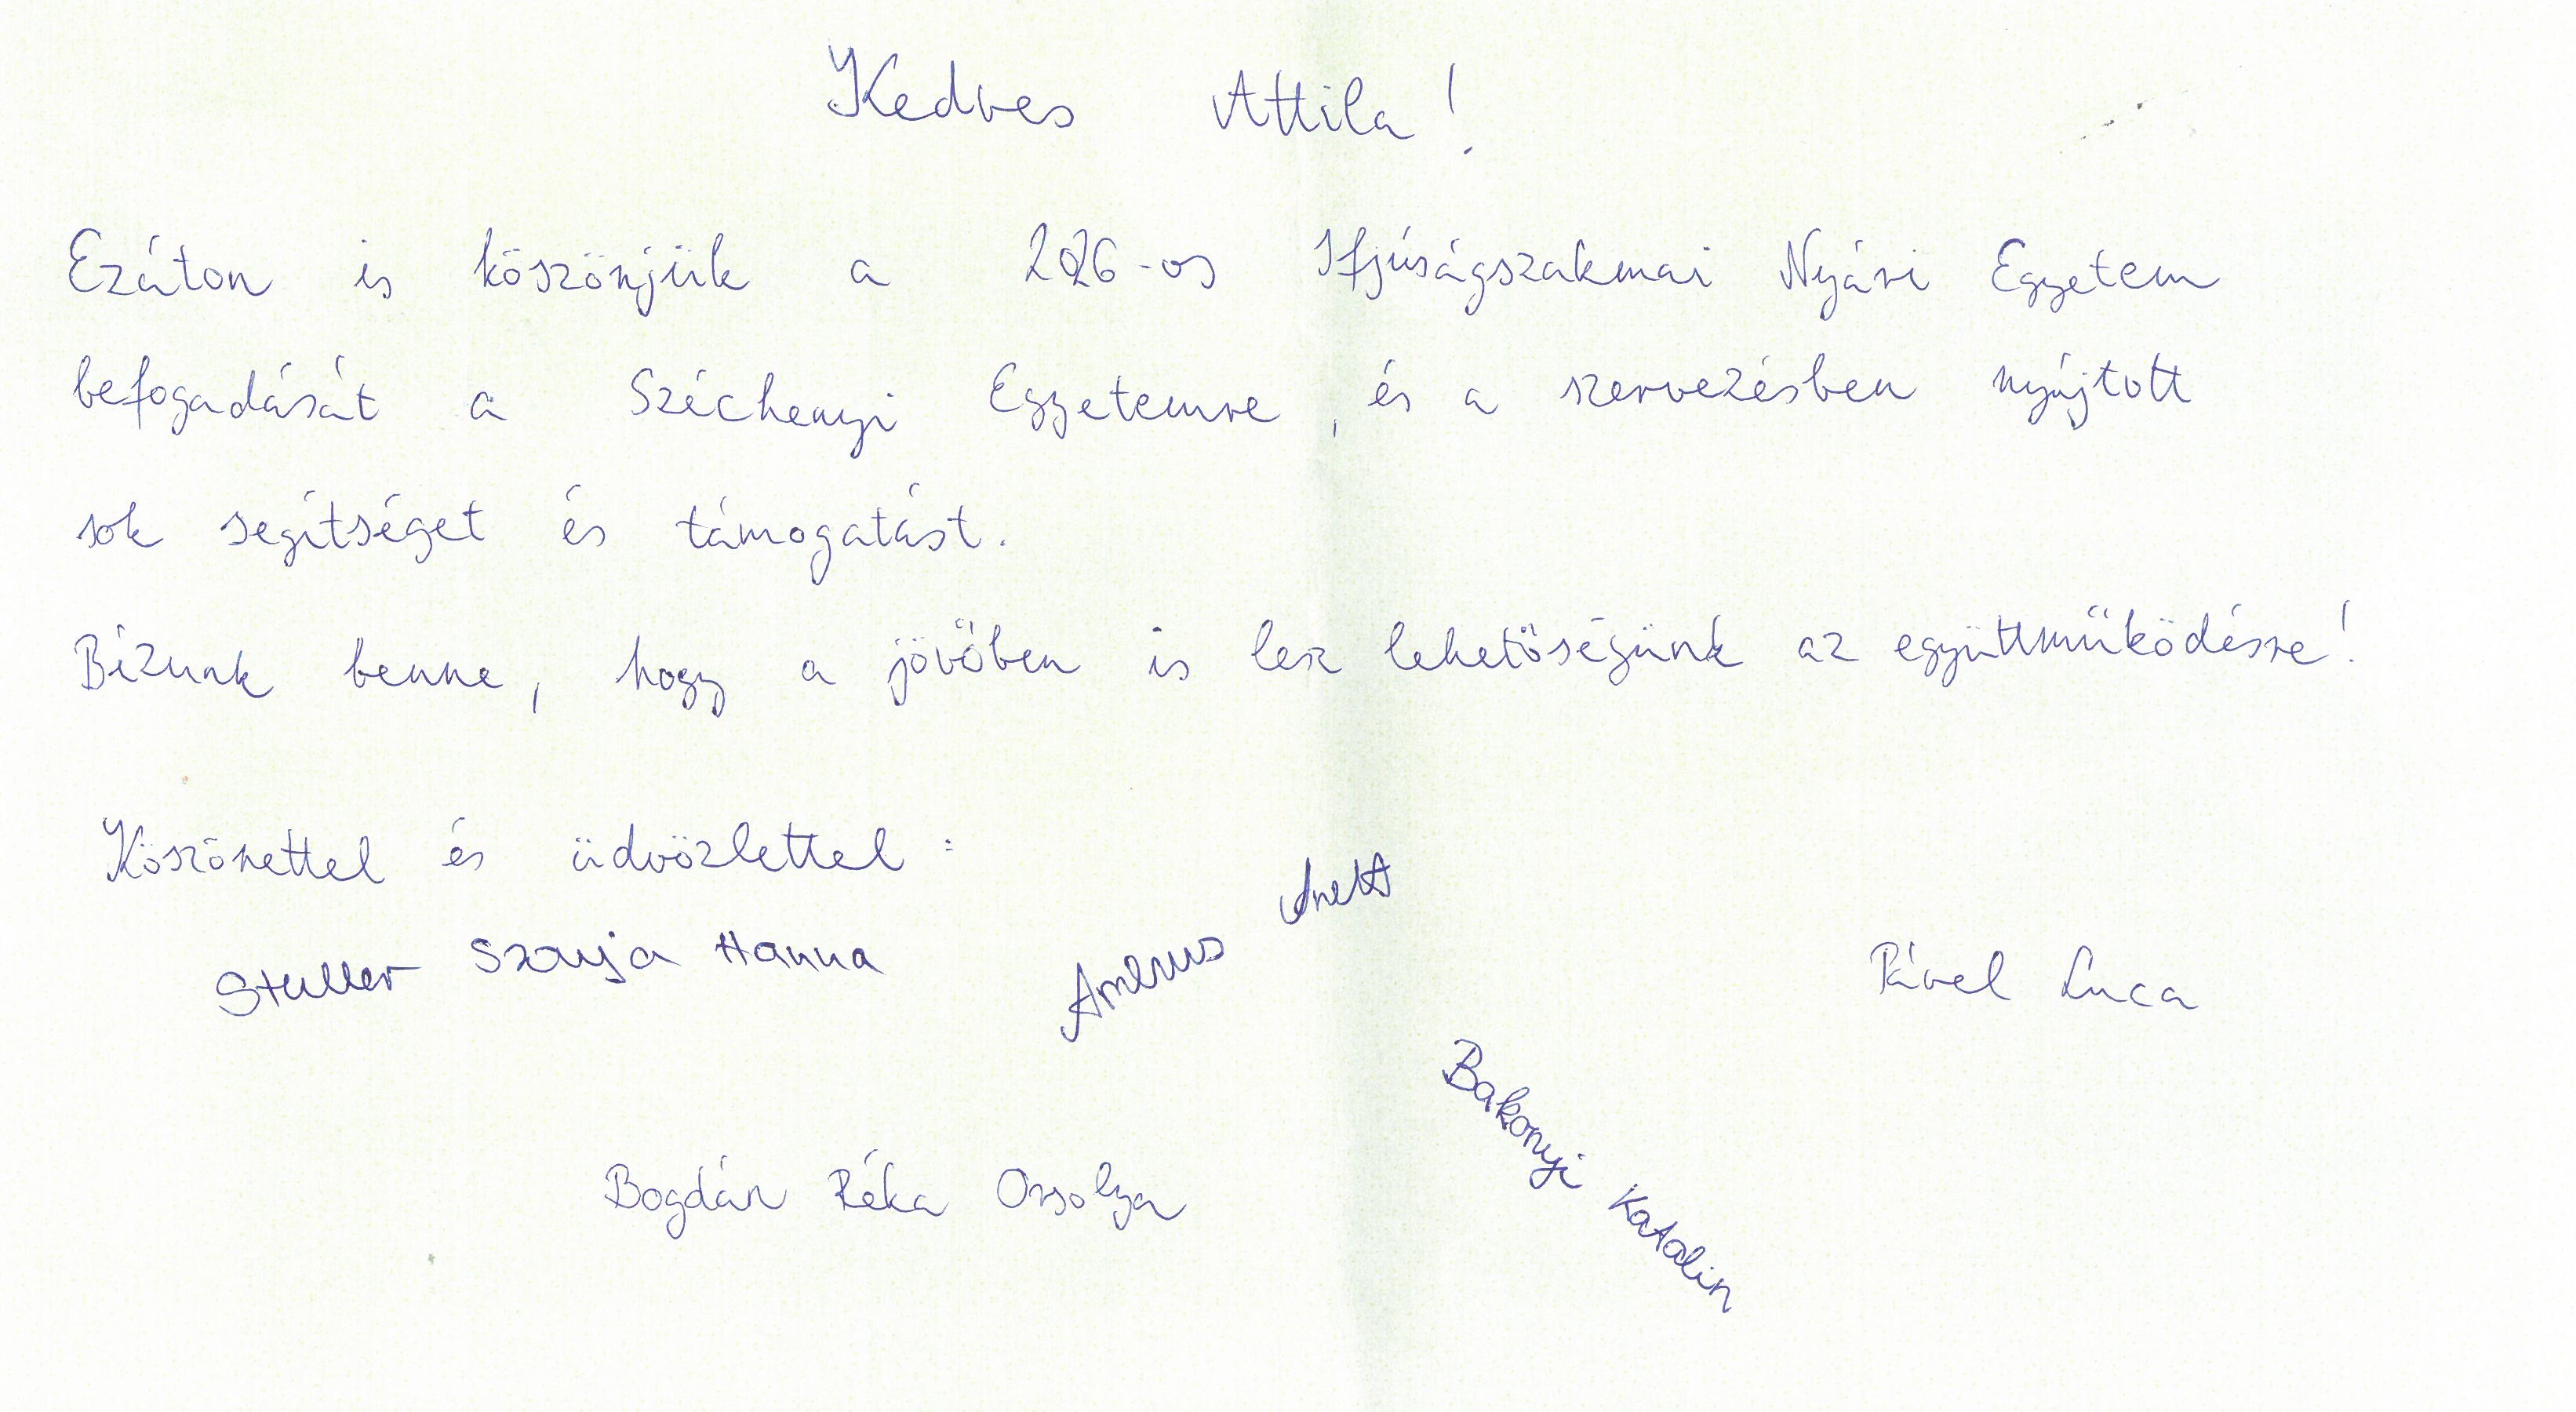 Kedves Attila!
Ezúton is köszönjük a 2026-os Ifjúságszakmai Nyári Egyetem
befogadását a Széchenyi Egyetemre, és a szervezésben nyújtott
sok segítséget és támogatást.
Bízunk benne, hogy a jövőben is lesz lehetőségünk az együttműködésre!
Köszönettel és üdvözlettel:
Stuller Hanna
Ambrus Anett
Pável Luca
Bakonyi Katalin
Bogdán Réka Orsolya